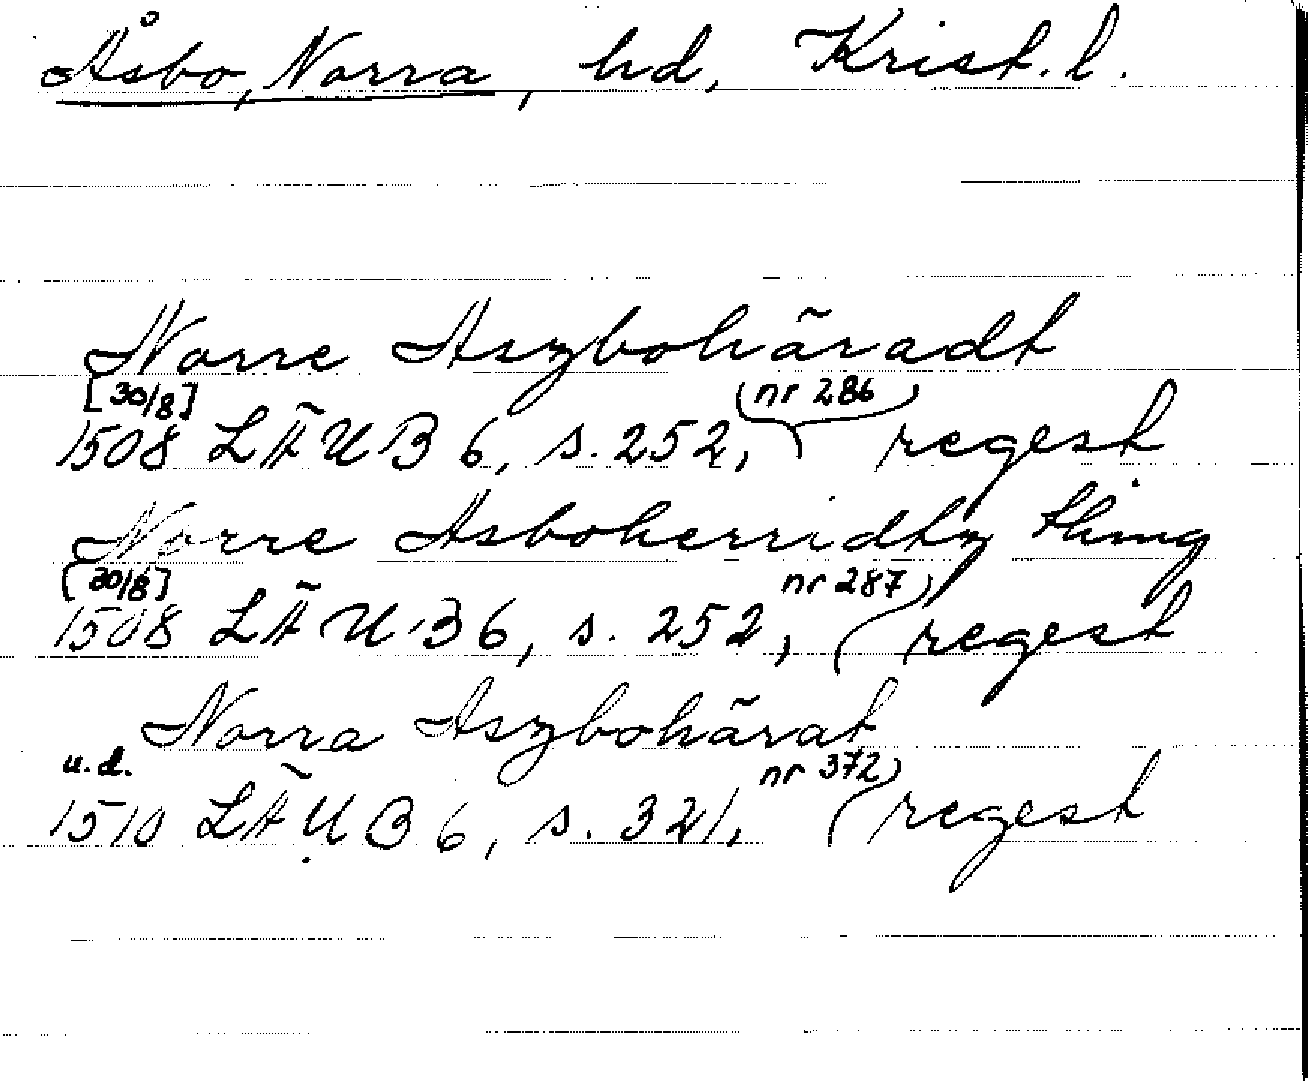 Åsbo, Norra, hd, Krist. l.
Norre Aszbohäradt
[30/8] nr 286
1508 LÄUB 6, s. 252, regest
Norre Asboherridtz thing
[30/8] nr 287
1508 LÄUB 6, s. 252, regest
Norra Aszbohärat
u.d. nr 372
1510 LÄUB 6, s. 321, regest